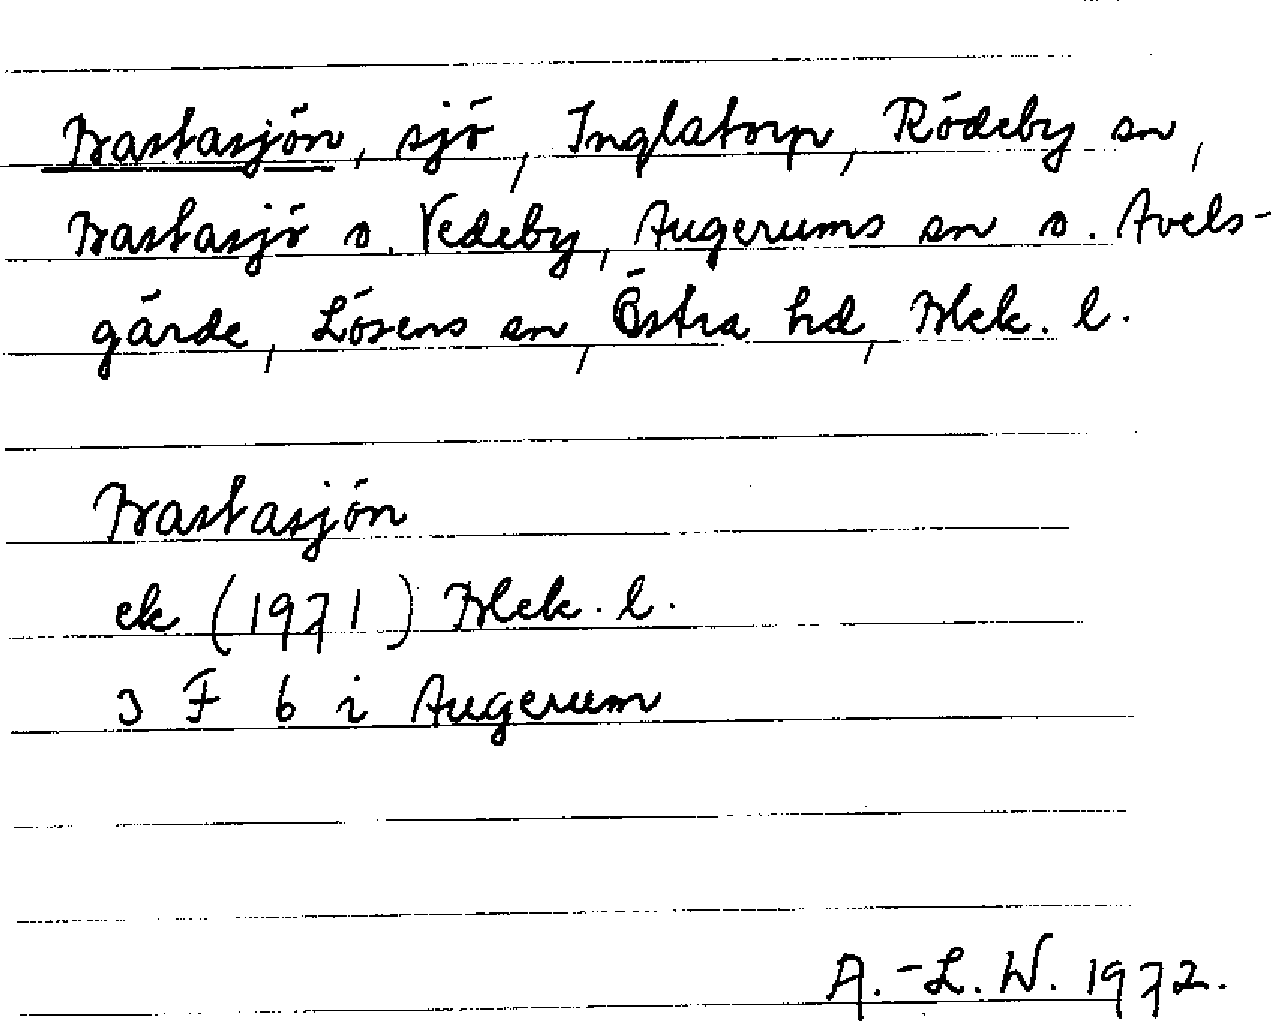 Bastasjön, sjö, Inglatorp, Rödeby sn,
Bastasjö o. Vedeby, Augerums sn o. Avels-
gärde, Lösens sn, Östra hd, Blek. l.
Bastasjön
ek (1971) Blek. l.
3 F 6 i Augerum
A.-L. W. 1972.